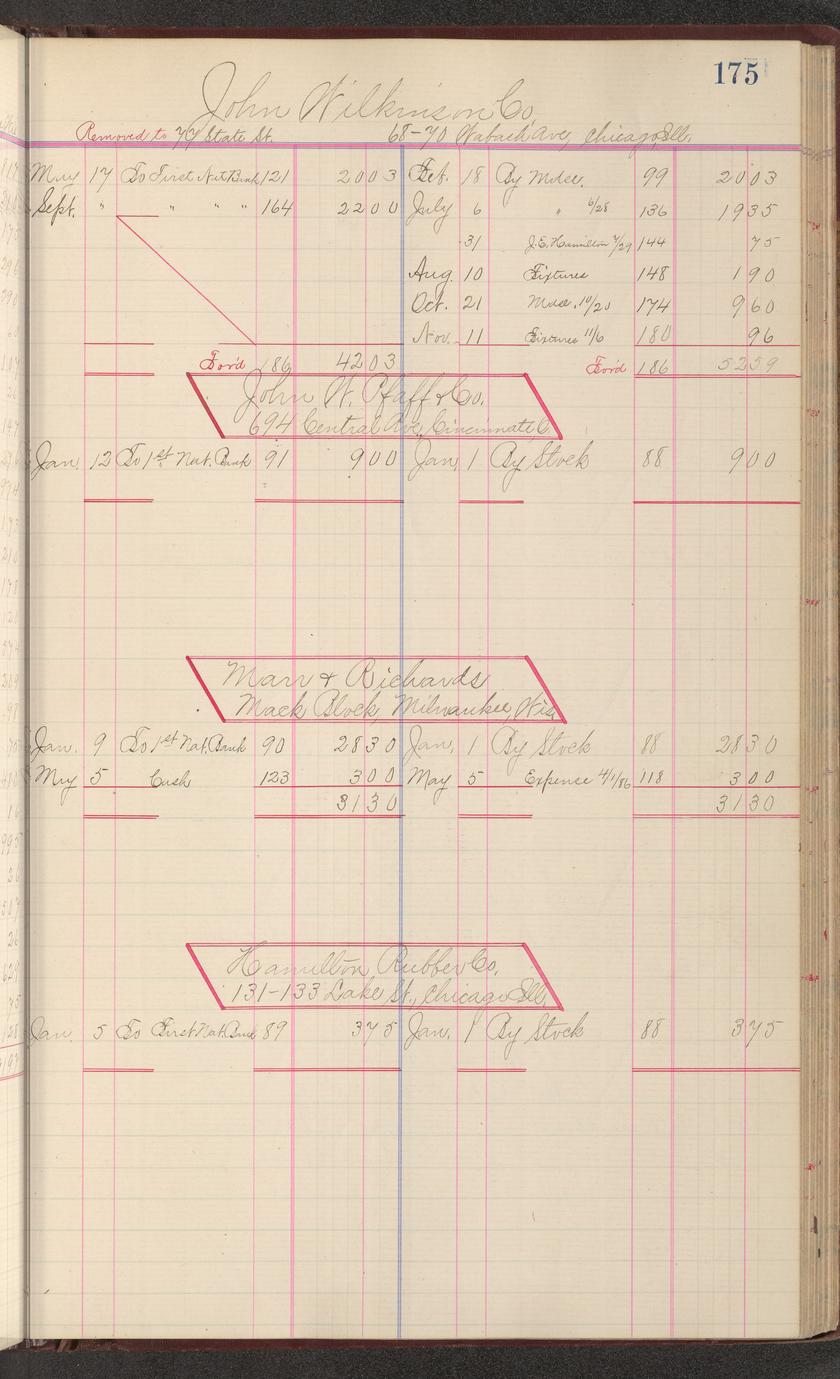 175
John Wilkinson Co.
Removed to 77 State St. 68-70 Wabash Ave, Chicago, Ill.
May 17 To First Nat Bank 121 2003 Feb. 18 By Mdse. 99 2003
Sept. " " " " 164 2200 July 6 " 6/28 136 1935
31 J.E. Hamilton 7/29 144 75
Aug. 10 Fixtures 148 190
Oct. 21 Mdse. 10/20 174 960
Nov. 11 Fixtures 11/6 180 96
For'd 186 4203 For'd 186 5259
John W. Pfaff & Co.
694 Central Ave, Cincinnati, O.
Jan. 12 To 1st Nat. Bank 91 900 Jan. 1 By Stock 88 900
Marr & Richards
Mack Block, Milwaukee, Wis.
Jan. 9 To 1st Nat. Bank 90 2830 Jan. 1 By Stock 88 2830
May 5 Cash 123 300 May 5 Expense 4/1/86 118 300
3130 3130
Hamilton Rubber Co.
131-133 Lake St., Chicago, Ill.
Jan. 5 To First Nat. Bank 89 375 Jan. 1 By Stock 88 375